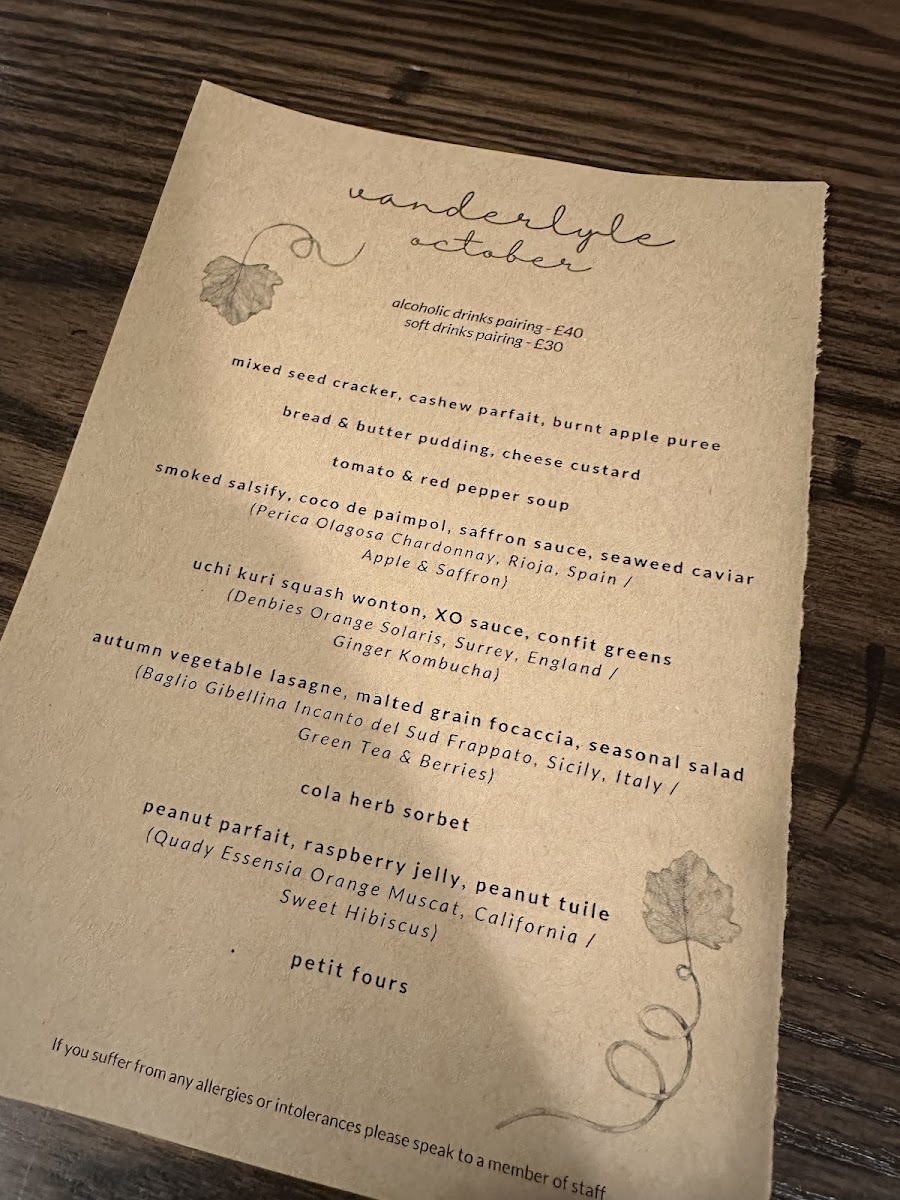 vanderlyle
october
alcoholic drinks pairing - £40
soft drinks pairing - £30
mixed seed cracker, cashew parfait, burnt apple puree
bread & butter pudding, cheese custard
tomato & red pepper soup
smoked salsify, coco de paimpol, saffron sauce, seaweed caviar
(Perica Olagosa Chardonnay, Rioja, Spain /
Apple & Saffron)
uchi kuri squash wonton, XO sauce, confit greens
(Denbies Orange Solaris, Surrey, England /
Ginger Kombucha)
autumn vegetable lasagne, malted grain focaccia, seasonal salad
(Baglio Gibellina Incanto del Sud Frappato, Sicily, Italy /
Green Tea & Berries)
cola herb sorbet
peanut parfait, raspberry jelly, peanut tuile
(Quady Essensia Orange Muscat, California /
Sweet Hibiscus)
petit fours
If you suffer from any allergies or intolerances please speak to a member of staff